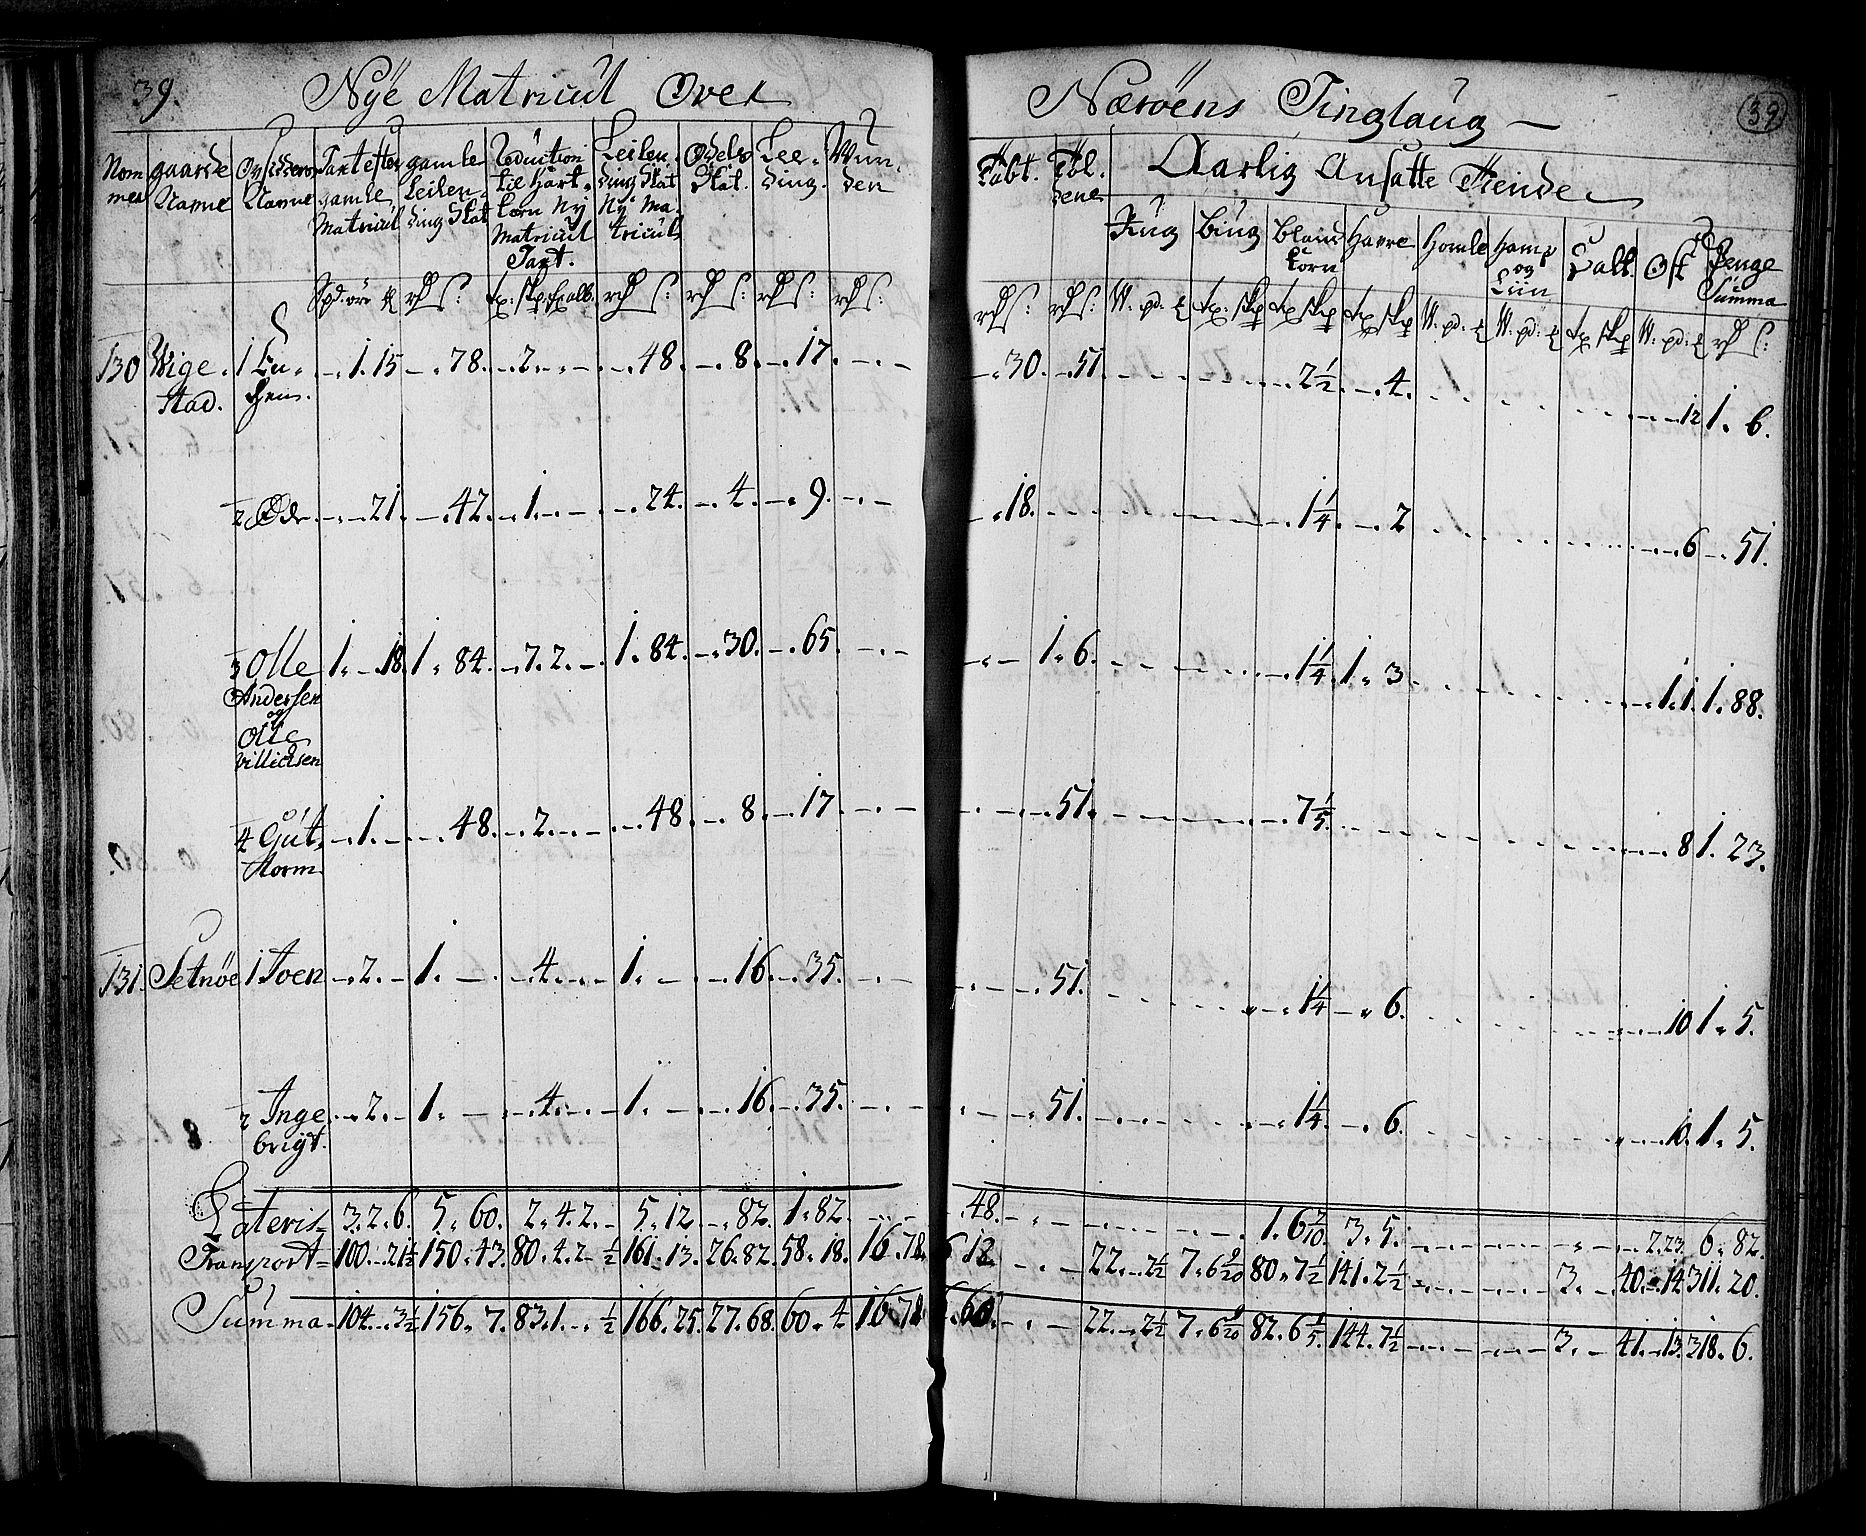 39. Nÿe Matricul Over Nærøens Tinglaug 39
Nom mer gaarde Nafne Opsidders Nafne Taxt efter gamle Matricul gamle Leilen- ding Skat Reduction til Hart- korn Nÿ Matricul Taxt. Leilen- ding Skat Nÿ Ma- tricul Odels Skat. Lee- ding.
Aarlig Ansatte Tiende
Rug Bÿug Bland korn Havre Homle Hamp og Liin Ost Penge Summa
130 Wige- stad. 1 1. 15 78. 2. 48. 8. 17. 30. 51. 2 1/2. 4. 12 1. 6.
2 Øde 21. 42. 1. 24. 4. 9. 18. 1 1/4. 2 6 51.
3 Olle Andersen og Olle Villichsen 1. 18. 1. 84. 7. 2. 1. 84. 30. 65. 1. 6. 1 1/4. 1. 3 1. 1. 1. 88.
4 Gut- torm 1. 48. 2. 48. 8. 17 51. 7 1/5. 8 1. 23.
131. Setnöe 1 Joen 2. 1. 4. 1. 16. 35. 51. 1 1/4 6. 10 1. 5.
2 Inge brigt. 2. 1. 4. 1. 16. 35. 51. 1 1/4. 6. 10. 1. 5.
Lateris 3. 2. 6. 5. 60. 2. 4. 2. 5. 12. 82. 1. 82. 48. 1. 6 7/10 3. 5. 2. 23. 6. 82.
Transport 100. 2 1/2 150. 43. 80. 4. 2 1/2 161. 13. 26. 82. 58. 18. 16. 78. 12 22. 2 1/2 7. 6 9/20 80. 7 1/2 141. 2 1/2 3. 40. 14 311. 20.
Summa 104. 3 1/2 156. 7. 83. 1. 1/2 166. 25. 27. 68. 60. 4 16. 78 60. 22. 2 1/2 7. 6 9/20 82. 6 1/5 144. 7 1/2 3. 41. 13. 318. 6.